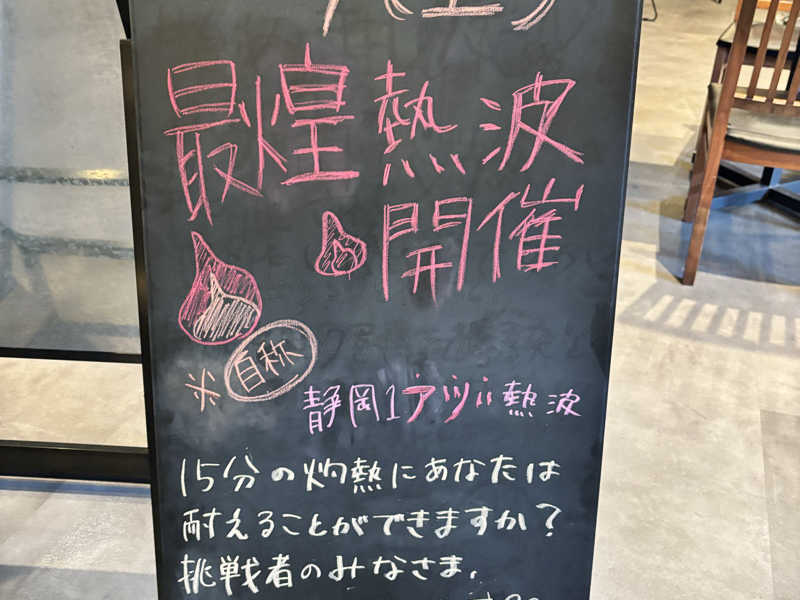 最煌熱波
開催
※自称
静岡1アツい熱波
15分の灼熱にあなたは
耐えることができますか?
挑戦者のみなさま、